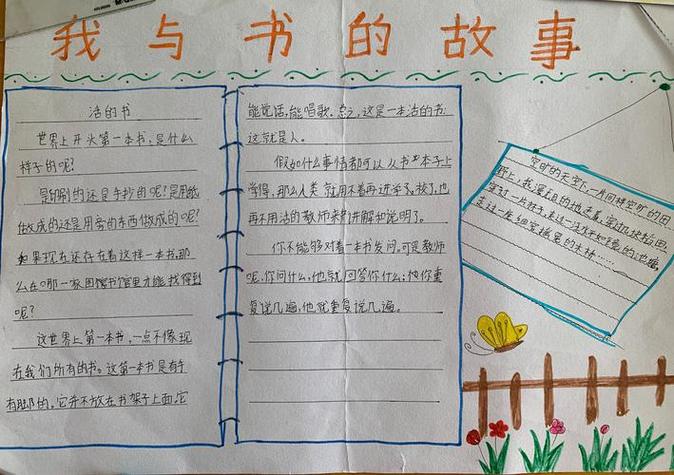 我与书的故事
活的书
世界上开头第一本书,是什么
样子的呢?
是印刷的还是手抄的呢?是用纸
做成的还是用旁的东西做成的呢?
如果现在还存在着这样一本书,那
么在哪一家图书馆里才能找得到
呢?
这世界上第一本书,一点不像现
在我们所有的书。这第一本书是有手
有脚的。它并不放在书架子上面,它
能说话,能唱歌。总之,这是一本活的书:
这就是人。
假如什么事情都可以从书本子上
学得,那么人类就用不着再进学校了,也
再不用活的教师来讲解和说明了。
你不能够对着一本书发问。可是教师
呢,你问什么,他就回答你什么;他你重
复说几遍,他就重复说几遍。
空旷的天空下,一片同样空旷的田
野上,我漫无目的地走着,穿过块块稻田,
穿过一片林子,走过一洼水平如镜的池塘,
走过一座